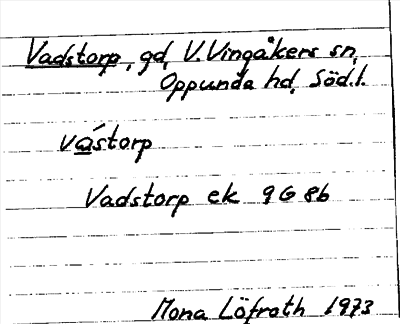 Vadstorp, gd, V. Vingåkers sn,
Oppunda hd, Söd.l.
vástorp
Vadstorp ek 9 G 8b
Mona Löfroth 1973